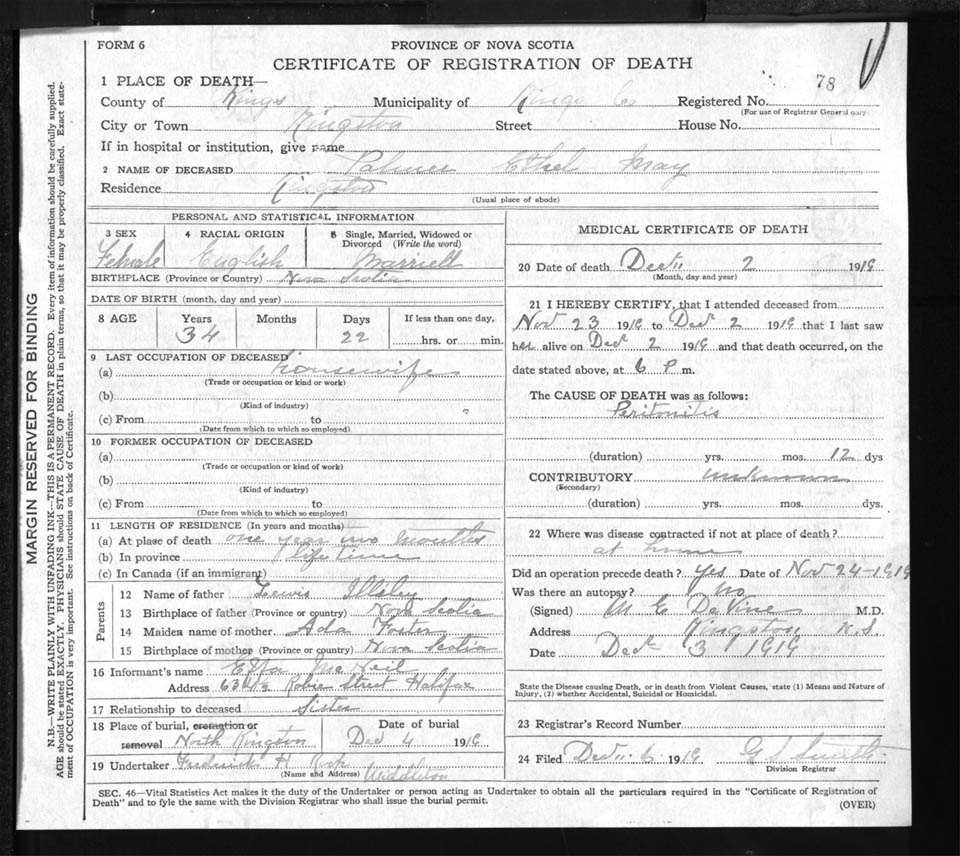 FORM 6
PROVINCE OF NOVA SCOTIA
CERTIFICATE OF REGISTRATION OF DEATH
78
1 PLACE OF DEATH—
County of Kings Municipality of Kings Co Registered No.
(For use of Registrar General only)
City or Town Kingston Street House No.
If in hospital or institution, give name
2 NAME OF DECEASED Palmer Ethel May
Residence Kingston
(Usual place of abode)
PERSONAL AND STATISTICAL INFORMATION
3 SEX 4 RACIAL ORIGIN 5 Single, Married, Widowed or Divorced (Write the word)
Female English Married
BIRTHPLACE (Province or Country) Nova Scotia
DATE OF BIRTH (month, day and year)
8 AGE Years Months Days If less than one day,
34 22 hrs. or min.
9 LAST OCCUPATION OF DECEASED
(a) housewife
(Trade or occupation or kind or work)
(b)
(Kind of industry)
(c) From to
(Date from which to which so employed)
10 FORMER OCCUPATION OF DECEASED
(a)
(Trade or occupation or kind of work)
(b)
(Kind of industry)
(c) From to
(Date from which to which so employed)
11 LENGTH OF RESIDENCE (In years and months)
(a) At place of death one year two months
(b) In province life time
(c) In Canada (if an immigrant)
Parents
12 Name of father Lewis Illsley
13 Birthplace of father (Province or country) Nova Scotia
14 Maiden name of mother Ada Foster
15 Birthplace of mother (Province or country) Nova Scotia
16 Informant's name Effa McNeil
Address 634½ Robie Street Halifax
17 Relationship to deceased Sister
18 Place of burial, cremation or removal North Kingston
Date of burial Dec 4 1919
19 Undertaker Frederick H Middleton
(Name and Address)
MEDICAL CERTIFICATE OF DEATH
20 Date of death Dec 2 1919
(Month, day and year)
21 I HEREBY CERTIFY, that I attended deceased from
Nov 23 1919 to Dec 2 1919 that I last saw
her alive on Dec 2 1919 and that death occurred, on the
date stated above, at 6 P m.
The CAUSE OF DEATH was as follows:
Peritonitis
(duration) yrs. mos. 12 dys
CONTRIBUTORY unknown
(Secondary)
(duration) yrs. mos. dys.
22 Where was disease contracted if not at place of death?
at home
Did an operation precede death? Yes Date of Nov 24-1919
Was there an autopsy? No
(Signed) M E DeVine M.D.
Address Kingston N.S.
Date Dec 3 1919
State the Disease causing Death, or in death from Violent Causes, state (1) Means and Nature of
Injury, (2) whether Accidental, Suicidal or Homicidal.
23 Registrar's Record Number
24 Filed Dec 6 1919
Division Registrar
SEC. 46—Vital Statistics Act makes it the duty of the Undertaker or person acting as Undertaker to obtain all the particulars required in the "Certificate of Registration of
Death" and to fyle the same with the Division Registrar who shall issue the burial permit.
(OVER)
MARGIN RESERVED FOR BINDING
N.B.—WRITE PLAINLY WITH UNFADING INK—THIS IS A PERMANENT RECORD. Every item of information should be carefully supplied.
AGE should be stated EXACTLY. PHYSICIANS should STATE CAUSE OF DEATH in plain terms, so that it may be properly classified. Exact state-
ment of OCCUPATION is very important. See instructions on back of Certificate.